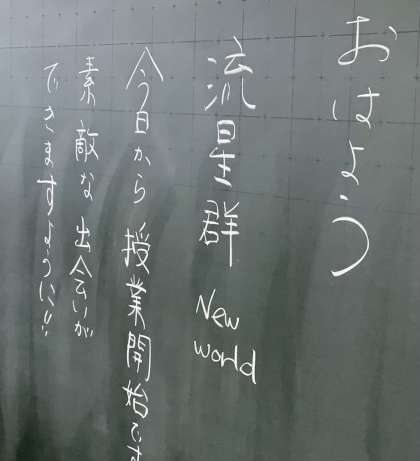 おはよう
流星群 New world
今日から授業開始です
素敵な出会いが
できますように!!